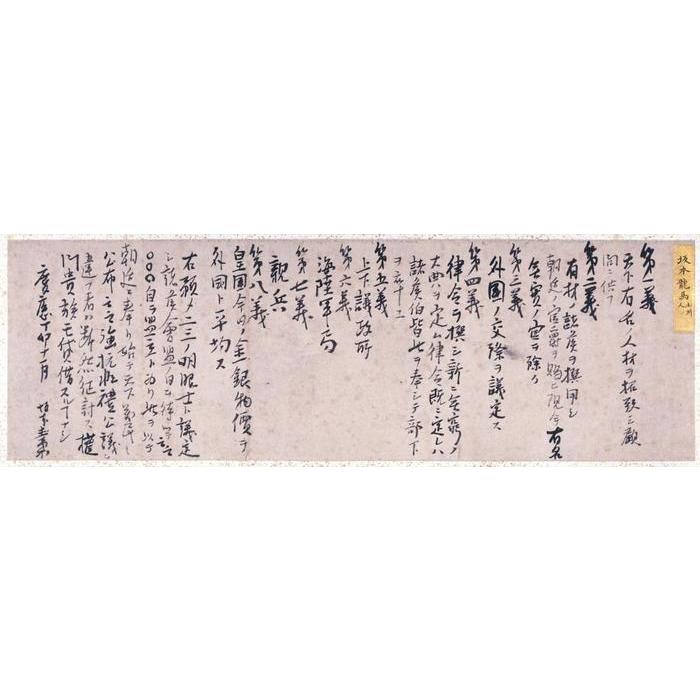 坂本龍馬
第一義
天下有名ノ人材ヲ招致シ顧
問ニ供フ
第二義
有材ノ諸侯ヲ撰用シ
朝廷ノ官爵ヲ賜ヒ現今有名
無実ノ官ヲ除ク
第三義
外国ノ交際ヲ議定ス
第四義
律令ヲ撰シ新ニ無窮ノ
大典ヲ定ム律令既ニ定レハ
諸侯伯皆此ヲ奉シテ部下
ヲ率ス
第五義
上下議政所
第六義
海陸軍局
第七義
親兵
第八義
皇国今日ノ金銀物價ヲ
外国ト平均ス
右預メ二三ノ明眼士ト議定
シ諸侯會盟ノ日ヲ待ツテ云云
○○○自ラ盟主ト為リ此ヲ以テ
朝廷ニ奉リ始テ天下萬民ニ
公布云云強抗非禮公議ニ
違フ者ハ断然征討ス權
門貴族モ貸借スルコトナシ
慶應丁卯十一月 坂本直柔